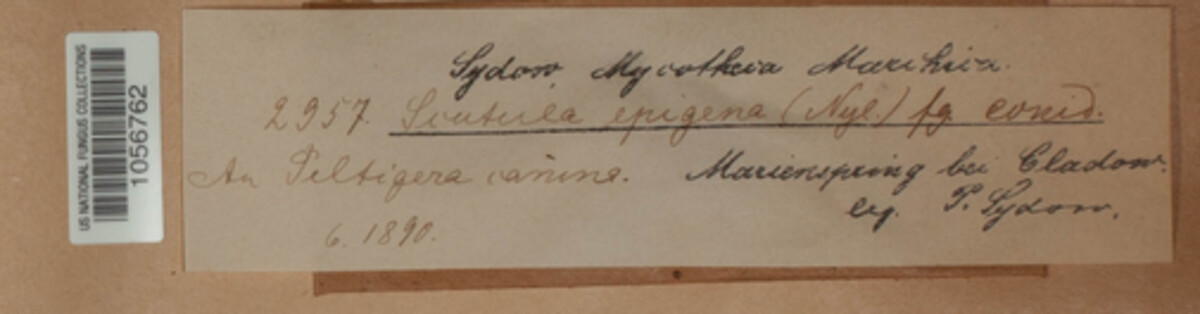 US NATIONAL FUNGUS COLLECTIONS
1056762
Sydow, Mycotheca Marchica.
2957. Scutula epigena (Nyl.) fg. conid.
An Peltigera canina. Marienspring bei Cladow.
leg. P. Sydow.
6. 1890.